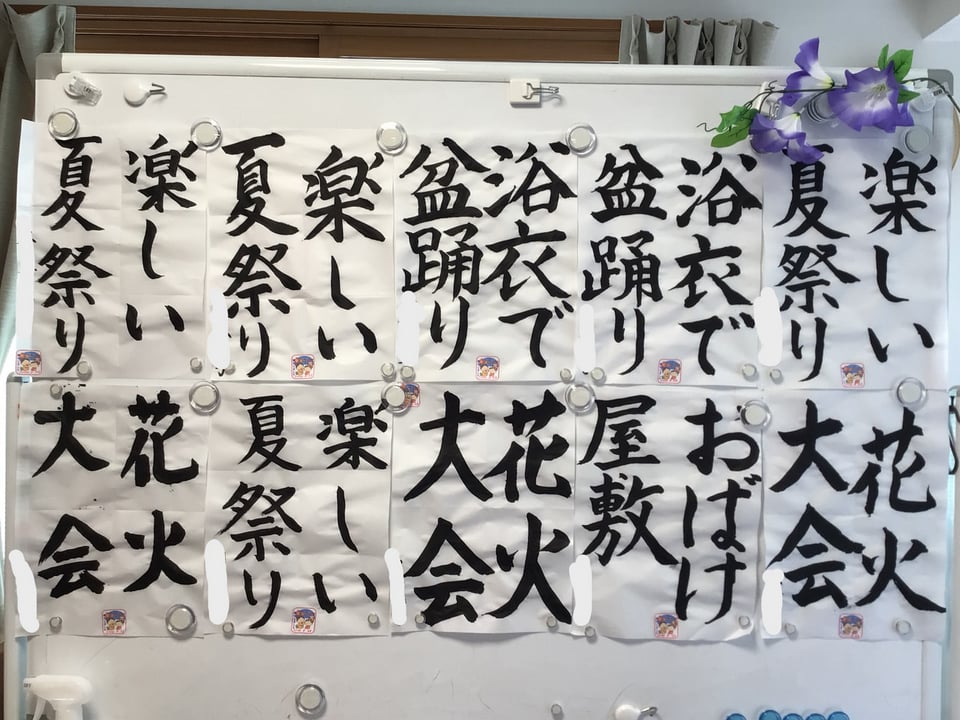 楽しい
夏祭り
浴衣で
盆踊り
浴衣で
盆踊り
楽しい
夏祭り
楽しい
夏祭り
花火
大会
おばけ
屋敷
花火
大会
楽しい
夏祭り
花火
大会